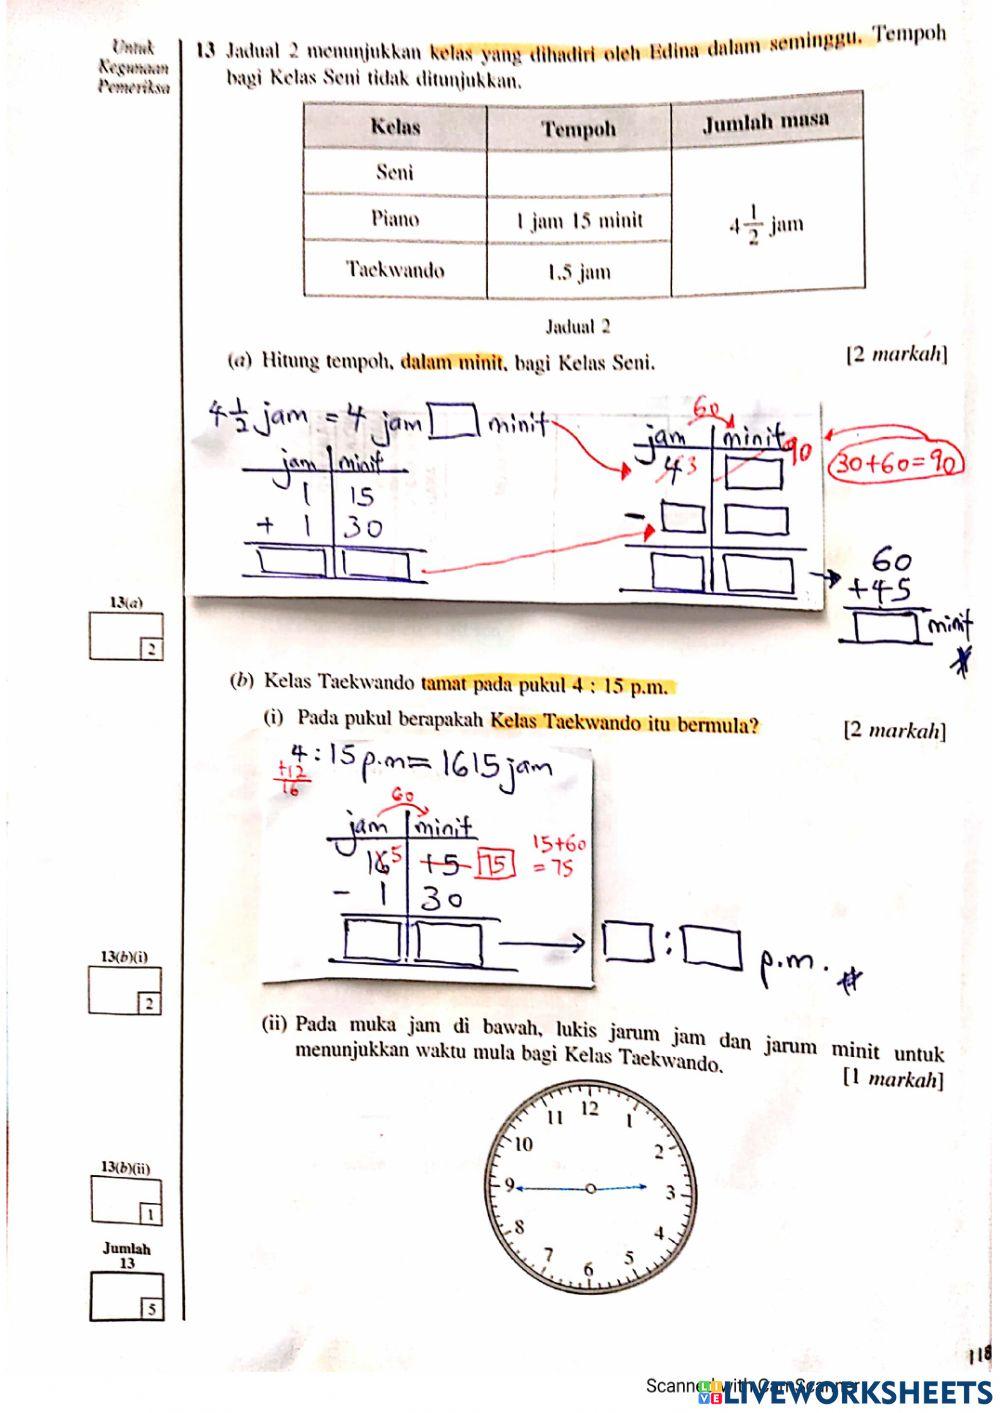 Untuk
Kegunaan
Pemeriksa
13 Jadual 2 menunjukkan kelas yang dihadiri oleh Edina dalam seminggu. Tempoh
bagi Kelas Seni tidak ditunjukkan.
Kelas Tempoh Jumlah masa
Seni
Piano 1 jam 15 minit 4 1/2 jam
Taekwando 1.5 jam
Jadual 2
(a) Hitung tempoh, dalam minit, bagi Kelas Seni. [2 markah]
4 1/2 jam = 4 jam minit
jam minit
1 15
+ 1 30
60
jam minit
4 3 90
-
30+60=90
60
+45
minit
13(a)
2
(b) Kelas Taekwando tamat pada pukul 4 : 15 p.m.
(i) Pada pukul berapakah Kelas Taekwando itu bermula? [2 markah]
4:15 p.m = 1615 jam
+12
16
60
jam minit
16 5 15 75
15+60
= 75
- 1 30
: p.m.
13(b)(i)
2
(ii) Pada muka jam di bawah, lukis jarum jam dan jarum minit untuk
menunjukkan waktu mula bagi Kelas Taekwando. [1 markah]
12
11 1
10 2
9 3
8 4
7 5
6
13(b)(ii)
1
Jumlah
13
5
118
Scanned with CamScanner
LIVEWORKSHEETS